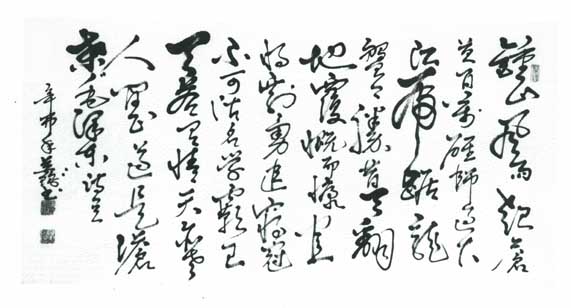 鐘山風雨起蒼
黄百万雄師過大
江虎踞龍
盤今勝昔天翻
地覆慨而慷宜
將剩勇追窮寇
不可沽名学霸王
天若有情天亦老
人間正道是滄
桑毛澤東詩
辛卯年書